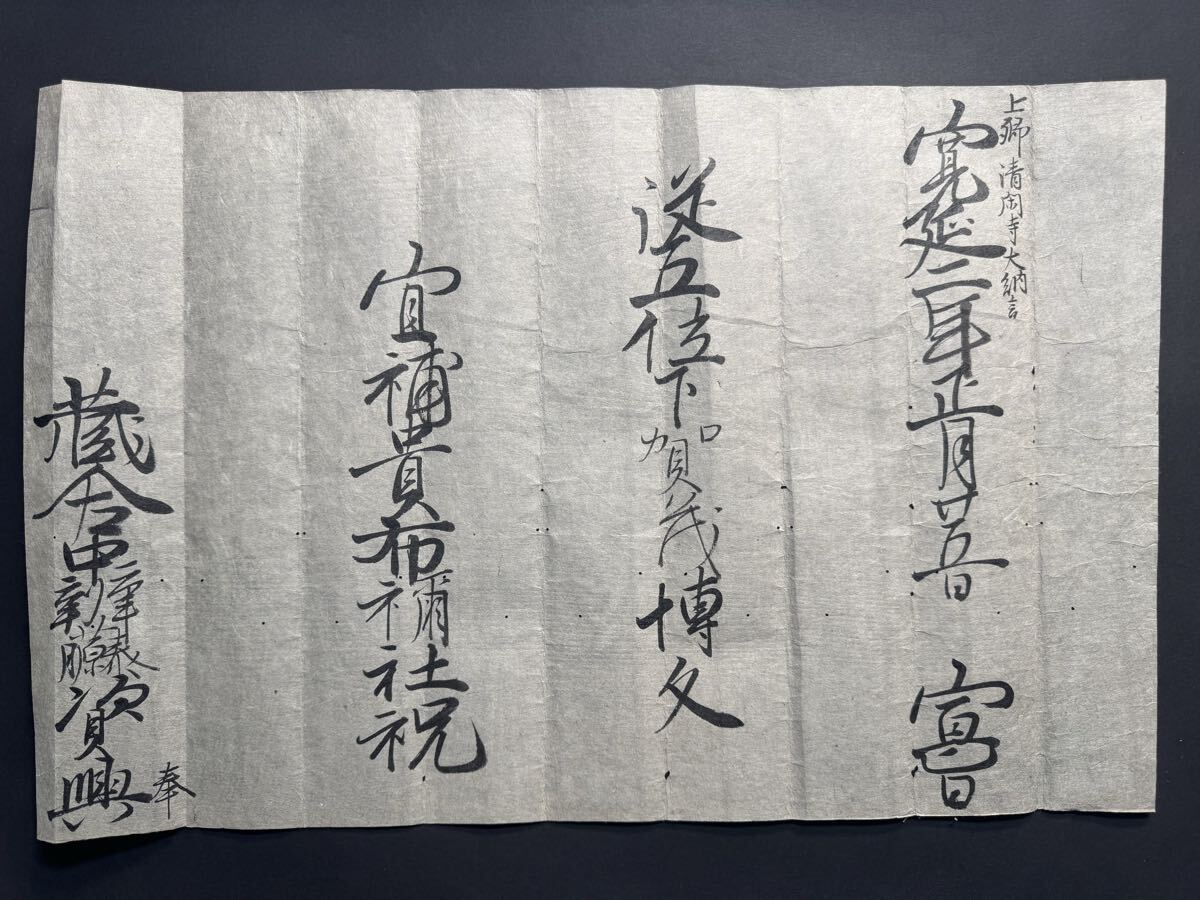 上卿 清閑寺大納言
寛延二年正月廿五日 宣旨
従五位下賀茂博久
宜補貴布禰社祝
蔵人右中弁藤原資興 奉